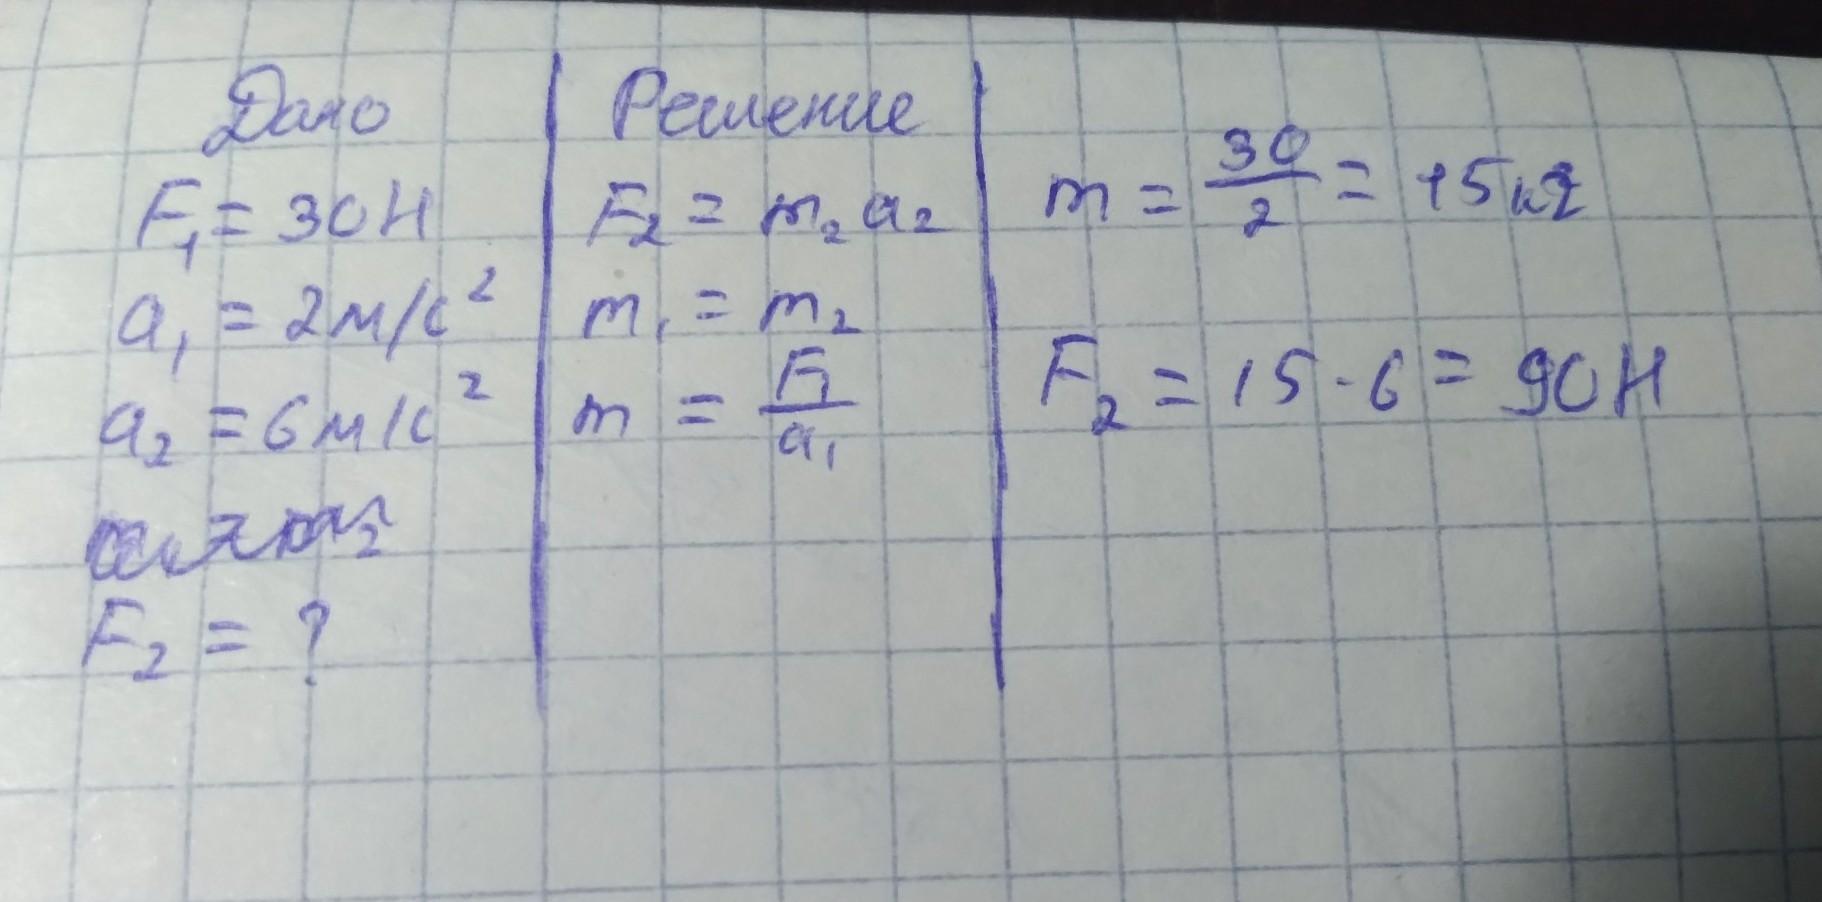 Дано
F₁ = 30 Н
a₁ = 2 м/с²
a₂ = 6 м/с²
F₂ = ?
Решение
F₂ = m₂ a₂
m₁ = m₂
m = F₁/a₁
m = 30/2 = 15 кг
F₂ = 15 · 6 = 90 Н